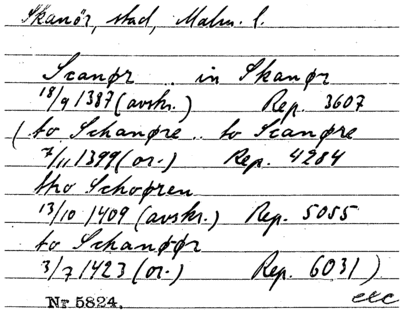 Skanör, stad, Malm. l.
Scanør .. in Skanør
18/9 1387 (avskr.) Rep. 3607
(to Schanøre .. to Scanøre
7/11 1399 (or.) Rep. 4284
tho Schoøren
13/10 1409 (avskr.) Rep. 5055
to Schanøør
3/7 1423 (or.) Rep. 6031)
Nr 5824. etc